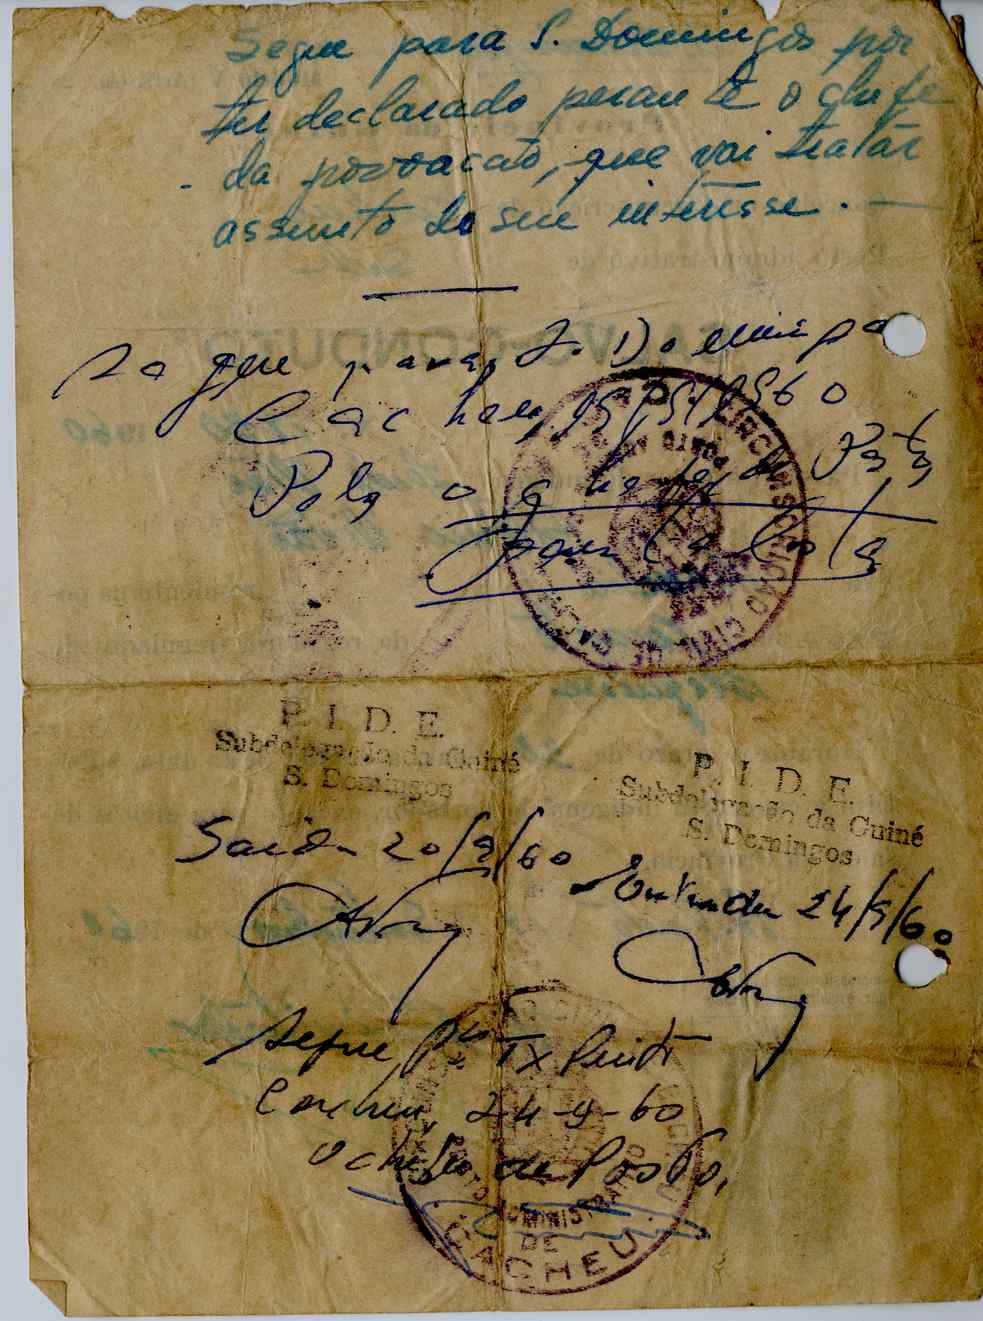 Segue para S. Domingos por
ter declarado perante o chefe
da povoação, que vai tratar
assunto do seu interesse.
Segue para S. Domingos
Cacheu, 19/9/1960
Pelo o chefe de Posto
P. I. D. E.
Subdelegação da Guiné
S. Domingos
P. I. D. E.
Subdelegação da Guiné
S. Domingos
Saída 20/9/60
Entrada 24/9/60
Segue para Tx Pinto
Cacheu, 24-9-60
O chefe de Posto,
CIRCUNSCRIÇÃO CIVIL DE CACHEU
POSTO ADMINISTRATIVO
DE
CACHEU